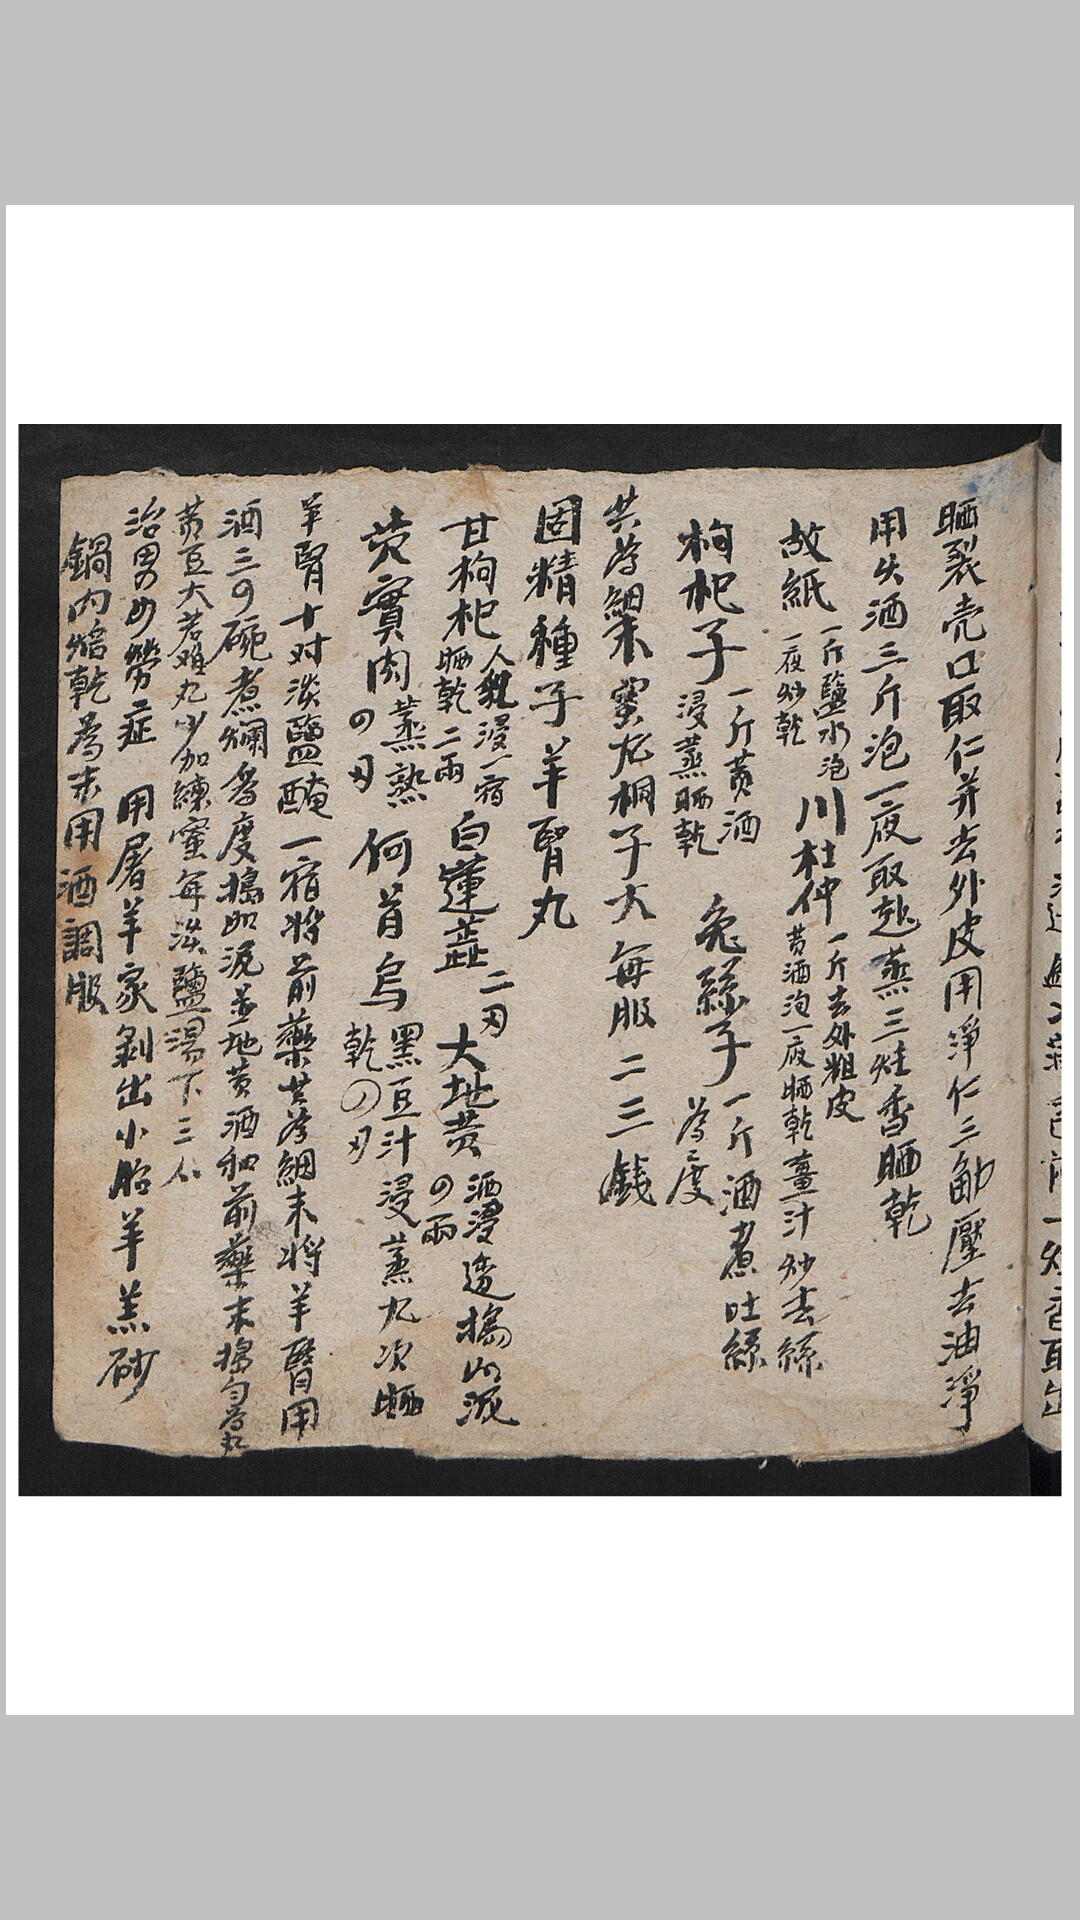 晒裂壳口取仁并去外皮用淨仁三觔壓去油淨
用火酒三斤泡一夜取起蒸三炷香晒乾
故紙 一斤鹽水泡一夜炒乾 川杜仲 一斤去外粗皮黄酒泡一夜晒乾薑汁炒去絲
枸杞子 一斤黄酒浸蒸晒乾 兔絲子 一斤酒煮吐絲為度
共為細末蜜丸桐子大每服二三錢
固精種子羊腎丸
甘枸杞 人乳浸一宿晒乾二兩 白蓮蕋 二刄 大地黄 酒浸透搗如泥の兩
芡實肉 蒸熟の刄 何首烏 黑豆汁浸蒸九次晒乾の刄
羊腎十对淡鹽醃一宿将前藥共為細末将羊腎用
酒三の碗煮爛為度搗如泥並地黄酒和前藥末搗匀為丸
黄豆大若难丸少加練蜜每淡鹽湯下三
治男の女勞症 用屠羊家剝出小胎羊羔砂
鍋内焙乾為末用酒調服